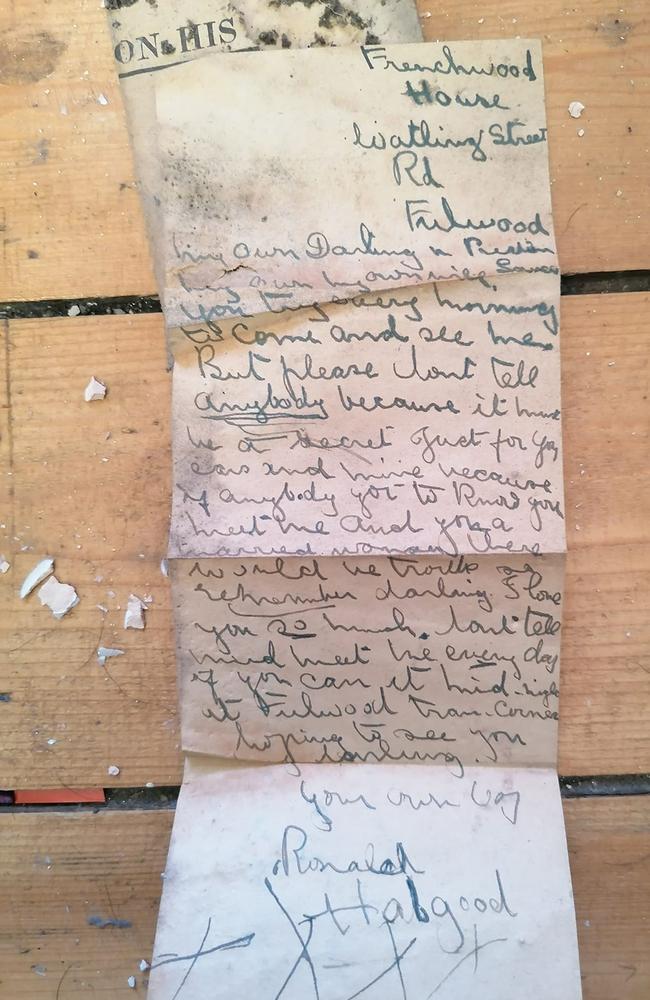 ON HIS
Frenchwood
House
Watling Street
Rd
Fulwood
My own Darling
my own
you try every morning
to come and see me.
But please dont tell
anybody because it must
be a secret Just for you
ears and mine because
if anybody got to know you
meet me and you a
married woman there
would be trouble so
remember darling I love
you so much. dont tell
mind meet me every day
if you can at mid-night
at Fulwood tram corner
hoping to see you
darling.
Your own boy
Ronald
Habgood